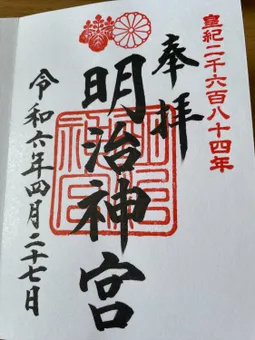 皇紀二千六百八十四年
奉拝
明治神宮
令和六年四月二十七日